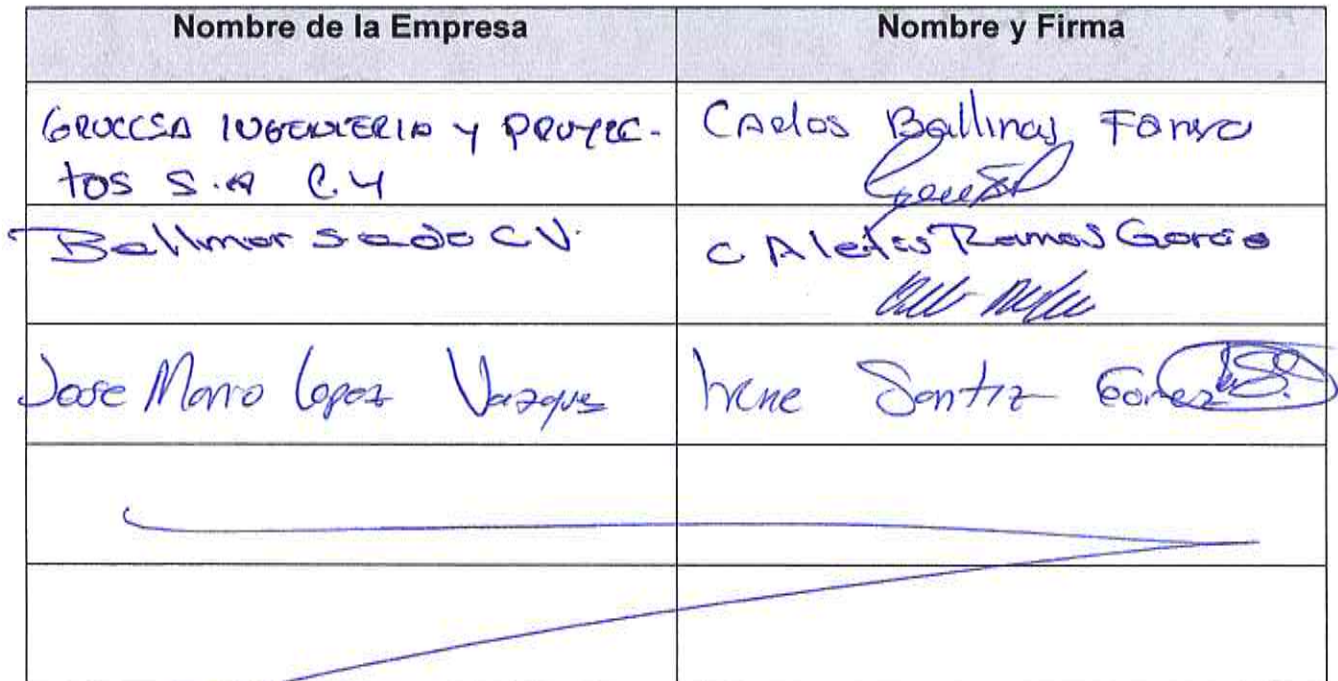 Nombre de la Empresa
Nombre y Firma
GRUCCSA INGENIERIA y PROYEC-
tos S.A C.V
Carlos Ballinas
Ballmar sa de CV.
C Ramos Garcia
Jose Mario Lopez Vazquez
Irene Santiz Gomez